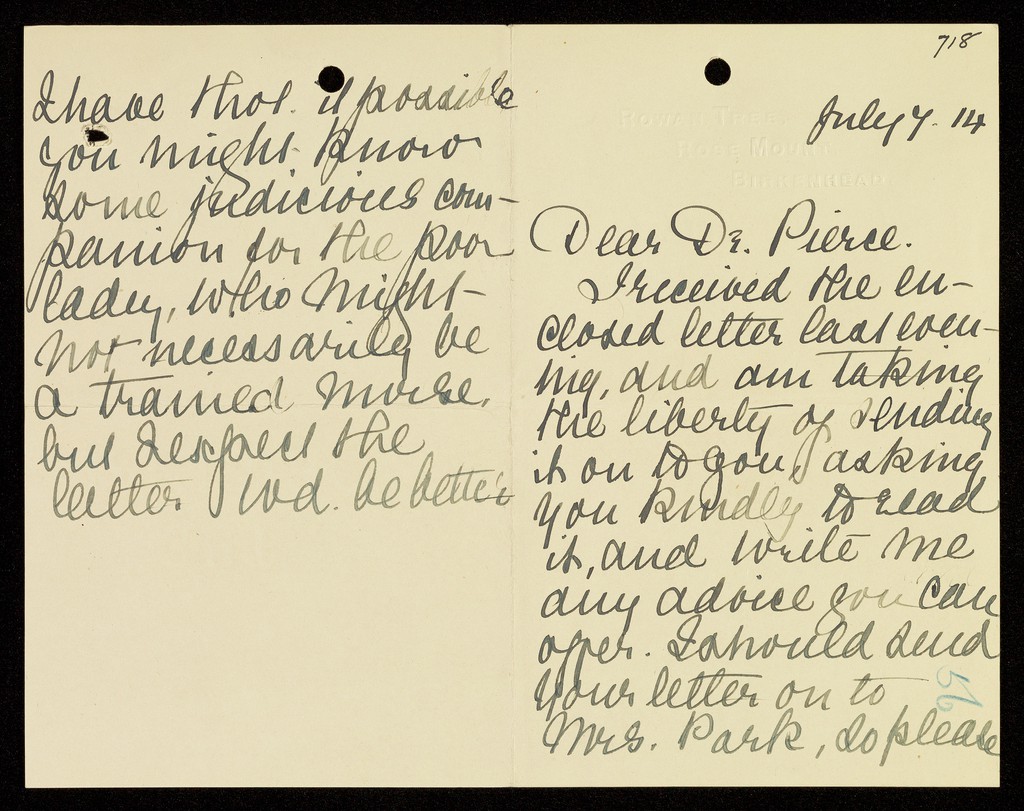 718
ROWAN TREE,
ROSE MOUNT,
BIRKENHEAD.
July 7. 14
Dear Dr. Pierce.
I received the en-
closed letter last even-
ing, and am taking
the liberty of sending
it on to you, asking
you kindly to read
it, and write me
any advice you can
offer. I should send
your letter on to
Mrs. Park, so please
56
I have thot. if possible
you might know
some judicious com-
panion for the poor
lady, who might
not necessarily be
a trained nurse,
but I expect the
latter wd. be better